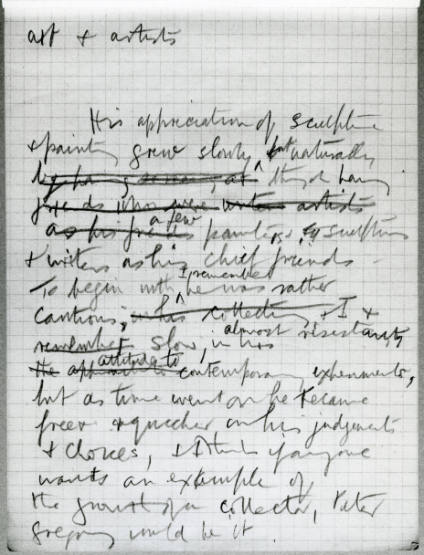 art & artists
His appreciation of sculpture
& painting grew slowly but naturally
by having as through having
friends who were writers artists
as his friends a few painters, & sculptors
& writers as his chief friends
To begin with I remember he was rather
cautious, in his collecting, I &
remember slow, in his almost resistant,
He attitude to contemporary experiments,
but as time went on he became
freer & quicker in his judgements
& choices, & I think if anyone
wants an example of
the growth of a collector, Peter
Gregory would be it.